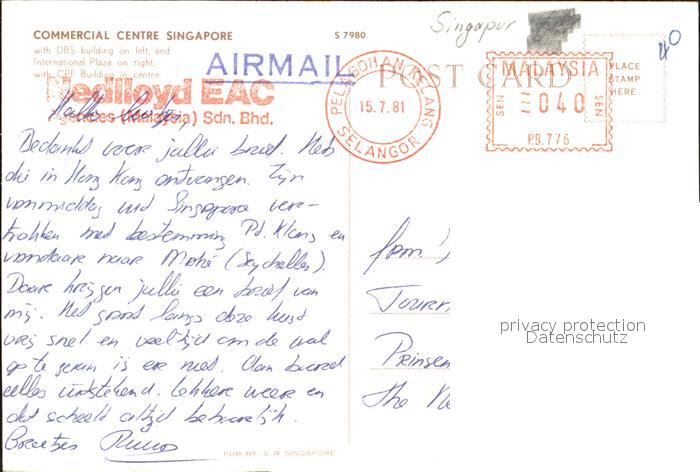 COMMERCIAL CENTRE SINGAPORE
S 7980
with DBS building on left, and
International Plaza on right,
with CPF Building in centre.
Singapur
40
AIRMAIL
POST CARD
PLACE
STAMP
HERE
Nedlloyd EAC
Agencies (Malaysia) Sdn. Bhd.
PELABOHAN KELANG
15.7.81
SELANGOR
MALAYSIA
SEN
040
SEN
P.B.776
Hallo
Bedankt voor jullie brief. Heb
die in Hong Kong ontvangen. Zijn
vanmiddag uit Singapore ver-
trokken met bestemming Pt. Klang en
vandaar naar Mahé (Seychellen).
Daar krijgen jullie een brief van
mij. Het gaat langs deze kust
vrij snel en veel tijd om de wal
op te gaan is er niet. Aan boord
alles uitstekend. Lekker weer en
dat scheelt altijd behoorlijk.
Groetjes
Fam.
Tourn
Prinsen
The Ne
privacy protection
Datenschutz
PUB. BY - S. W. SINGAPORE